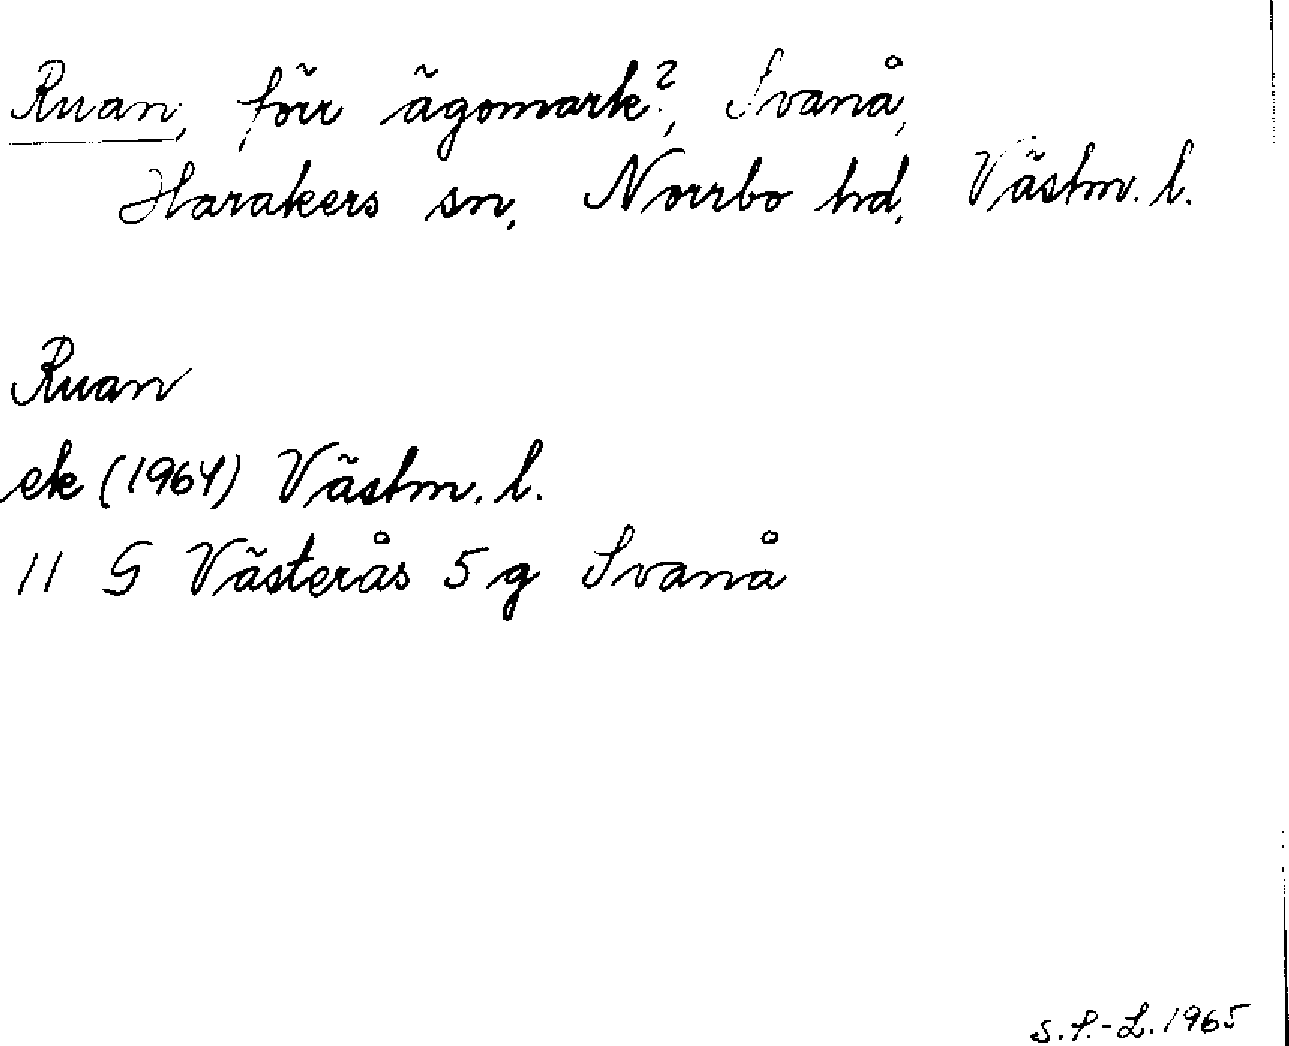 Ruan, förr ägomark?, Svanå,
Harakers sn, Norrbo hd, Västm. l.
Ruan
ek (1964) Västm. l.
11 G Västerås 5 g Svanå
S.S.-L. 1965